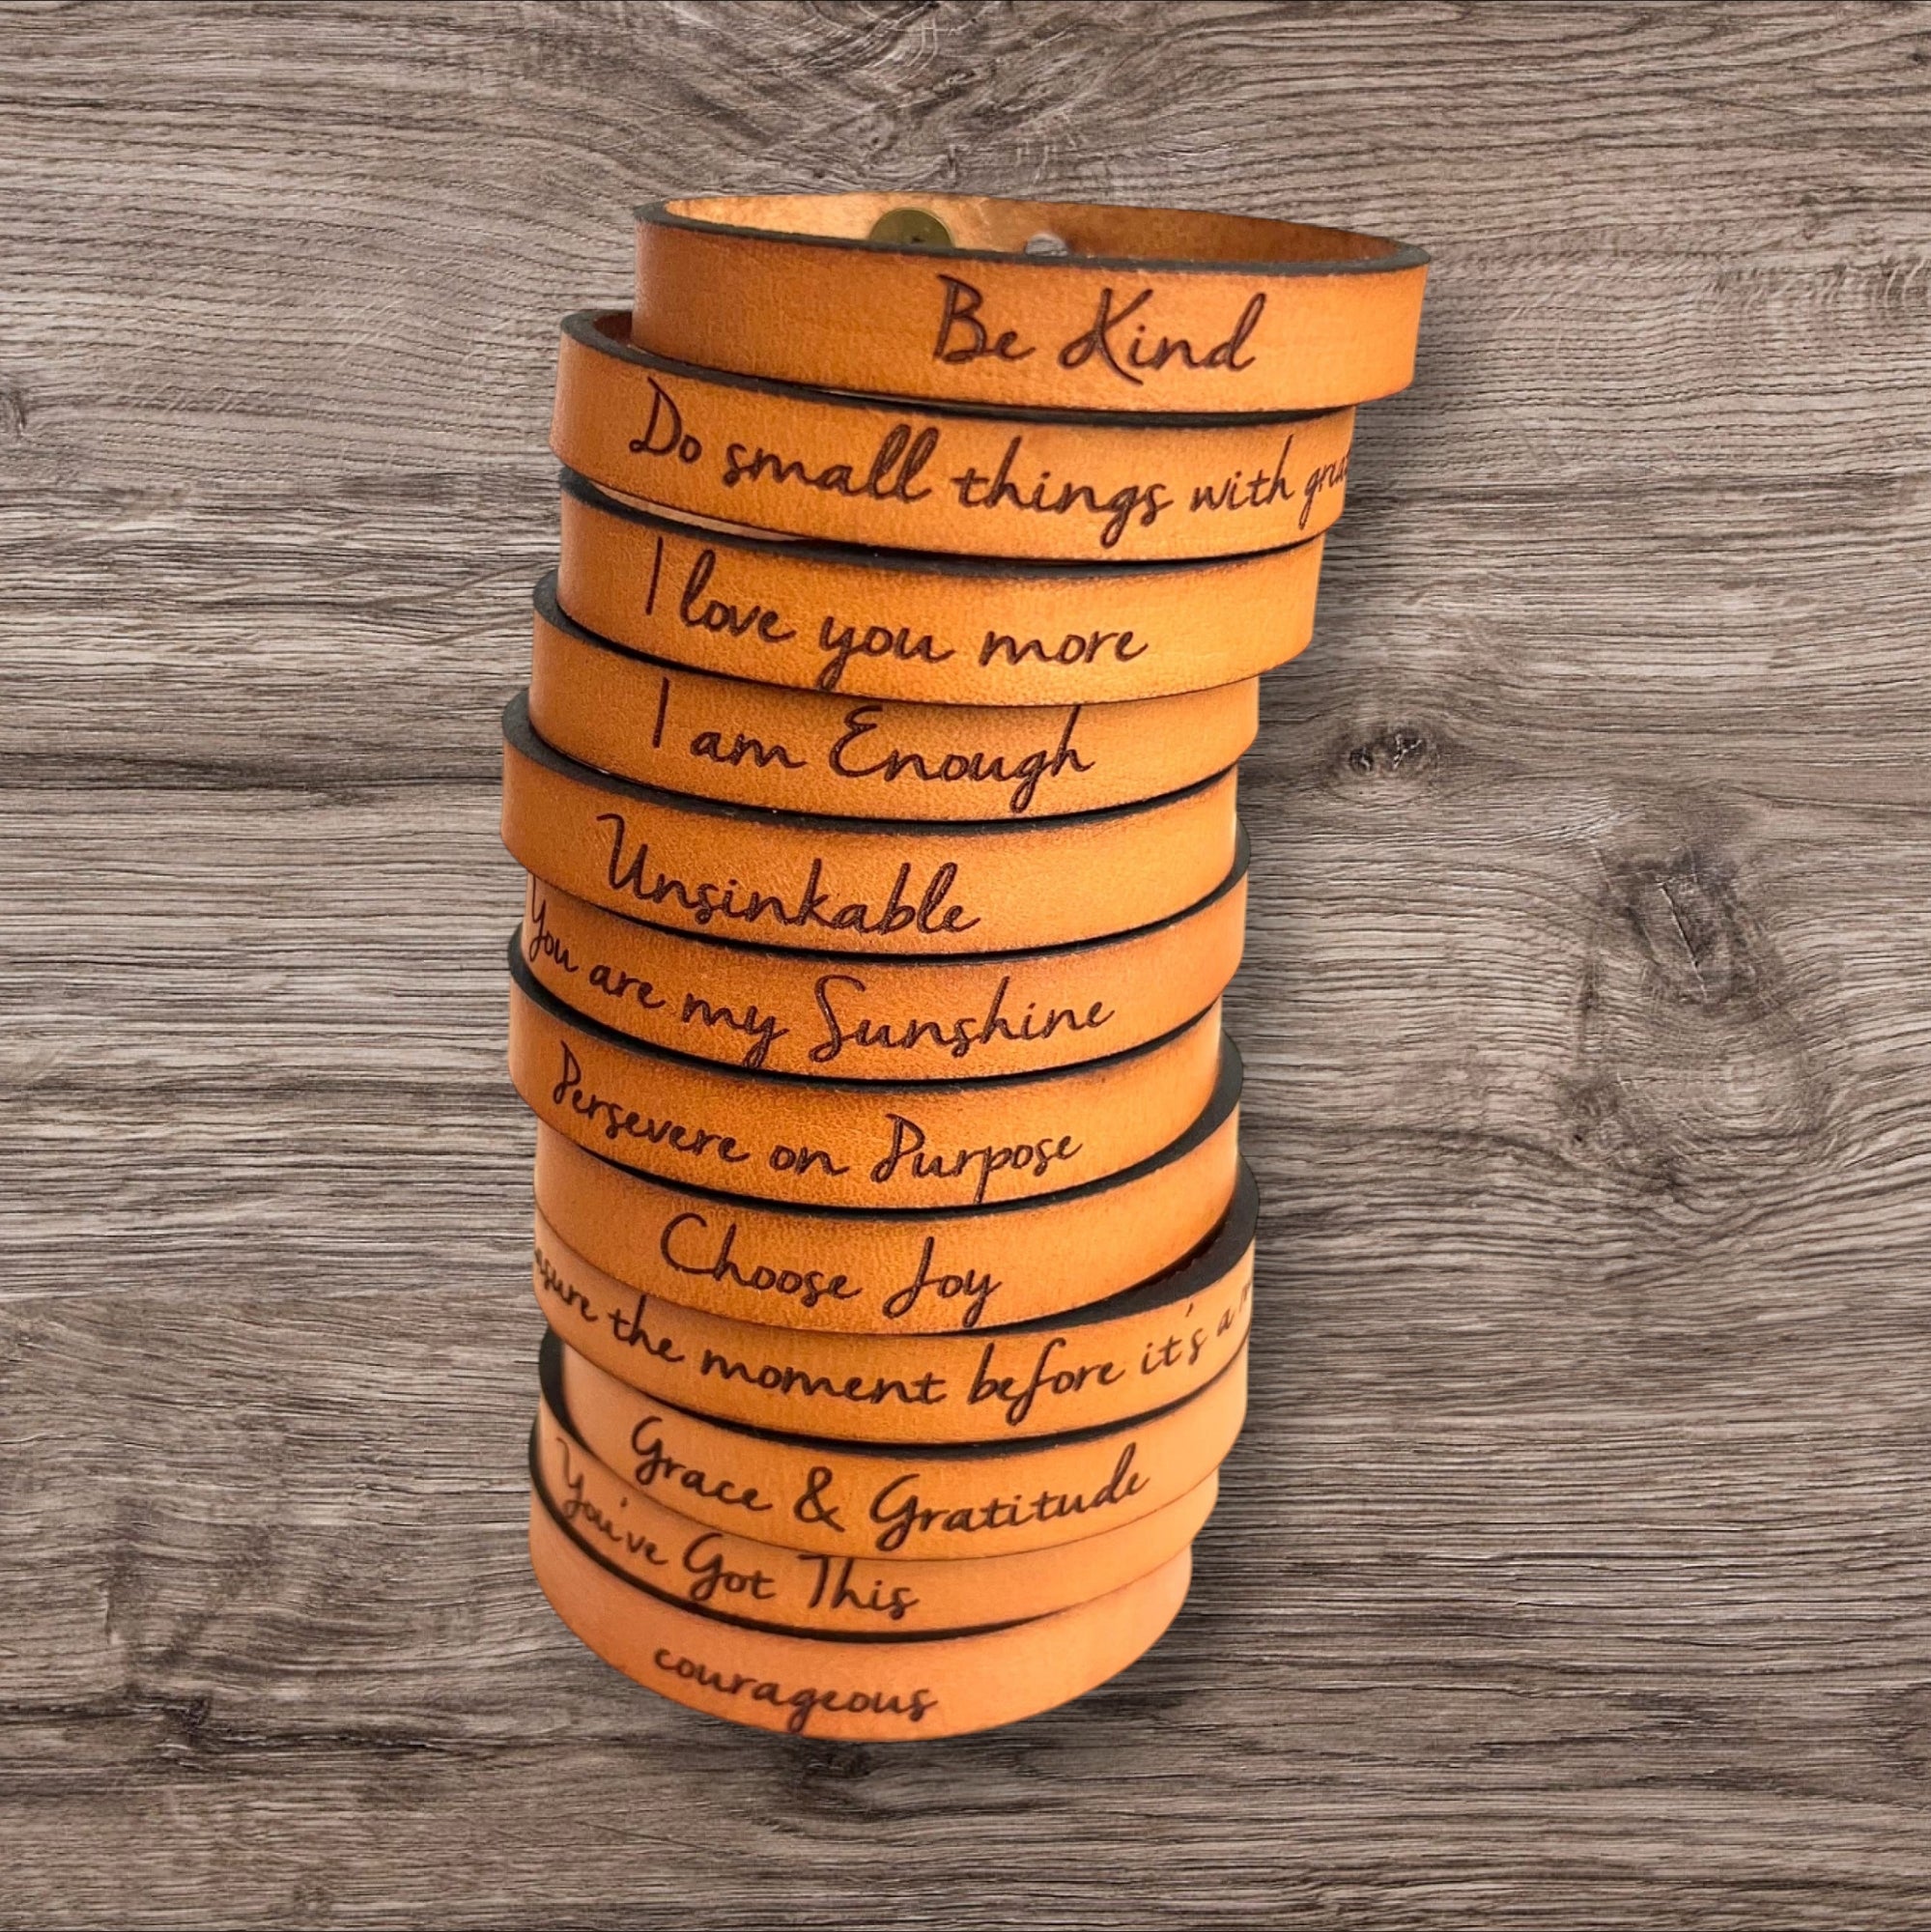 Be Kind
Do small things with
I love you more
I am Enough
Unsinkable
You are my Sunshine
Persevere on Purpose
Choose Joy
the moment before it's a
Grace & Gratitude
You've Got This
courageous